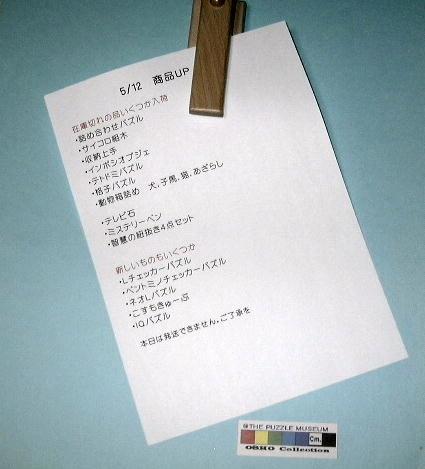 5/12 商品UP
在庫切れの品いくつか入荷
・詰め合わせパズル
・サイコロ組木
・収納上手
・インポシオブジェ
・テトドミパズル
・格子パズル
・動物箱詰め 犬,子黒,猫,あざらし
・テレビ石
・ミステリーペン
・智慧の紐抜き4点セット
新しいものもいくつか
・Lチェッカーパズル
・ペントミノチェッカーパズル
・ネオLパズル
・こすもきゅーぶ
・IQパズル
本日は発送できません,ご了承を
@THE PUZZLE MUSEUM
Cm.
OSHO Collection